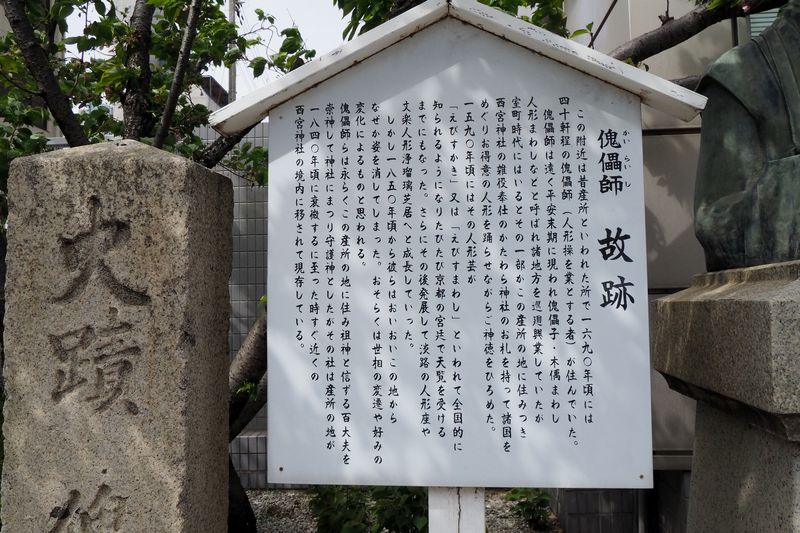 傀儡師 故跡
かいらいし
この附近は昔産所といわれた所で一六九〇年頃には
四十軒程の傀儡師（人形操を業とする者）が住んでいた。
傀儡師は遠く平安末期に現われ傀儡子・木偶まわし
人形まわしなどと呼ばれ諸地方を巡廻興業していたが
室町時代にはいるとその一部がこの産所の地に住みつき
西宮神社の雑役奉仕のかたわら神社のお札を持って諸国を
めぐりお得意の人形を踊らせながらご神徳をひろめた。
一五九〇年頃にはその人形芸が
「えびすかき」又は「えびすまわし」といわれて全国的に
知られるようになりたびたび京都の宮廷で天覧を受ける
までにもなった。さらにその後発展して淡路の人形座や
文楽人形浄瑠璃芝居へと成長していった。
しかし一八五〇年頃から彼らはおいおいこの地から
なぜか姿を消してしまった。おそらくは世相の変遷や好みの
変化によるものと思われる。
傀儡師らは永らくこの産所の地に住み祖神と信ずる百太夫を
崇神して神社にまつり守護神としたがその社は産所の地が
一八四〇年頃に衰微するに至った時すぐ近くの
西宮神社の境内に移されて現存している。
史蹟